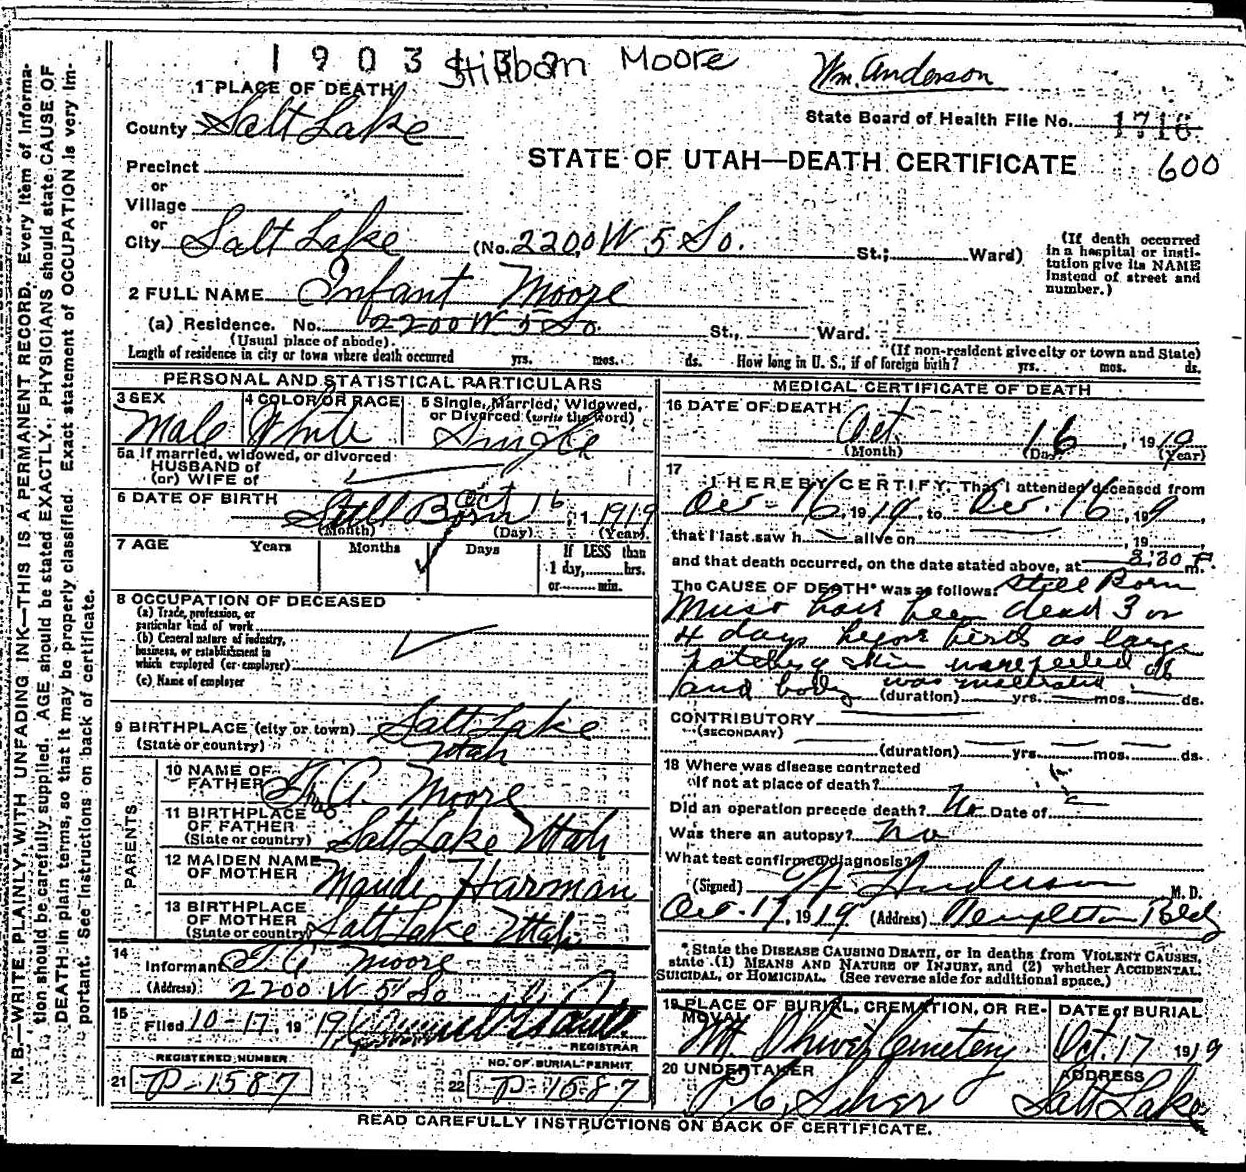 1903132 Stillborn Moore
Wm. Anderson
1 PLACE OF DEATH
County Salt Lake
State Board of Health File No. 1716
STATE OF UTAH—DEATH CERTIFICATE 600
Precinct
or
Village
or
City Salt Lake (No. 2200 W 5 So. St.; Ward)
(If death occurred in a hospital or insti-
tution give its NAME
instead of street and
number.)
2 FULL NAME Infant Moore
(a) Residence. No. 2200 W 5 So St., Ward.
(Usual place of abode). (If non-resident give city or town and State)
Length of residence in city or town where death occurred yrs. mos. ds. How long in U. S., if of foreign birth? yrs. mos. ds.
PERSONAL AND STATISTICAL PARTICULARS
3 SEX Male
4 COLOR OR RACE White
5 Single, Married, Widowed,
or Divorced (write the word)
Single
5a If married, widowed, or divorced
HUSBAND of
(or) WIFE of
6 DATE OF BIRTH Still Born Oct 16 1919
(Month) (Day) (Year)
7 AGE Years Months Days If LESS than
1 day, hrs.
or min.
8 OCCUPATION OF DECEASED
(a) Trade, profession, or
particular kind of work
(b) General nature of industry,
business, or establishment in
which employed (or employer)
(c) Name of employer
9 BIRTHPLACE (city or town) Salt Lake
(State or country) Utah
PARENTS
10 NAME OF
FATHER A. Moore
11 BIRTHPLACE
OF FATHER
(State or country) Salt Lake Utah
12 MAIDEN NAME
OF MOTHER Maude Harman
13 BIRTHPLACE
OF MOTHER
(State or country) Salt Lake Utah
14 Informant Moore
(Address) 2200 W 5 So
15 Filed 10-17, 1919
REGISTRAR
REGISTERED NUMBER
21 P-1587
NO. OF BURIAL PERMIT
22 P-1587
MEDICAL CERTIFICATE OF DEATH
16 DATE OF DEATH
Oct. 16, 1919
(Month) (Day) (Year)
17 I HEREBY CERTIFY, That I attended deceased from
Oct-16, 1919 to Oct. 16, 199,
that I last saw h alive on , 19 ,
and that death occurred, on the date stated above, at 8:30 P. m.
The CAUSE OF DEATH* was as follows: Still Born
Must have been dead 3 or
4 days before birth as large
patches of skin were peeled off
and body was macerated
(duration) yrs. mos. ds.
CONTRIBUTORY
(SECONDARY)
(duration) yrs. mos. ds.
18 Where was disease contracted
if not at place of death?
Did an operation precede death? No Date of
Was there an autopsy? No
What test confirmed diagnosis?
(Signed) W Anderson M. D.
Oct. 17, 1919 (Address) Templeton Bldg
*State the DISEASE CAUSING DEATH, or in deaths from VIOLENT CAUSES,
state (1) MEANS AND NATURE OF INJURY, and (2) whether ACCIDENTAL,
SUICIDAL, or HOMICIDAL. (See reverse side for additional space.)
19 PLACE OF BURIAL, CREMATION, OR RE-
MOVAL
Mt. Olivet Cemetery
DATE of BURIAL
Oct. 17 1919
20 UNDERTAKER
ADDRESS
Salt Lake
READ CAREFULLY INSTRUCTIONS ON BACK OF CERTIFICATE.
N. B.—WRITE PLAINLY, WITH UNFADING INK—THIS IS A PERMANENT RECORD. Every item of informa-
tion should be carefully supplied. AGE should be stated EXACTLY. PHYSICIANS should state CAUSE OF
DEATH in plain terms, so that it may be properly classified. Exact statement of OCCUPATION is very im-
portant. See instructions on back of certificate.